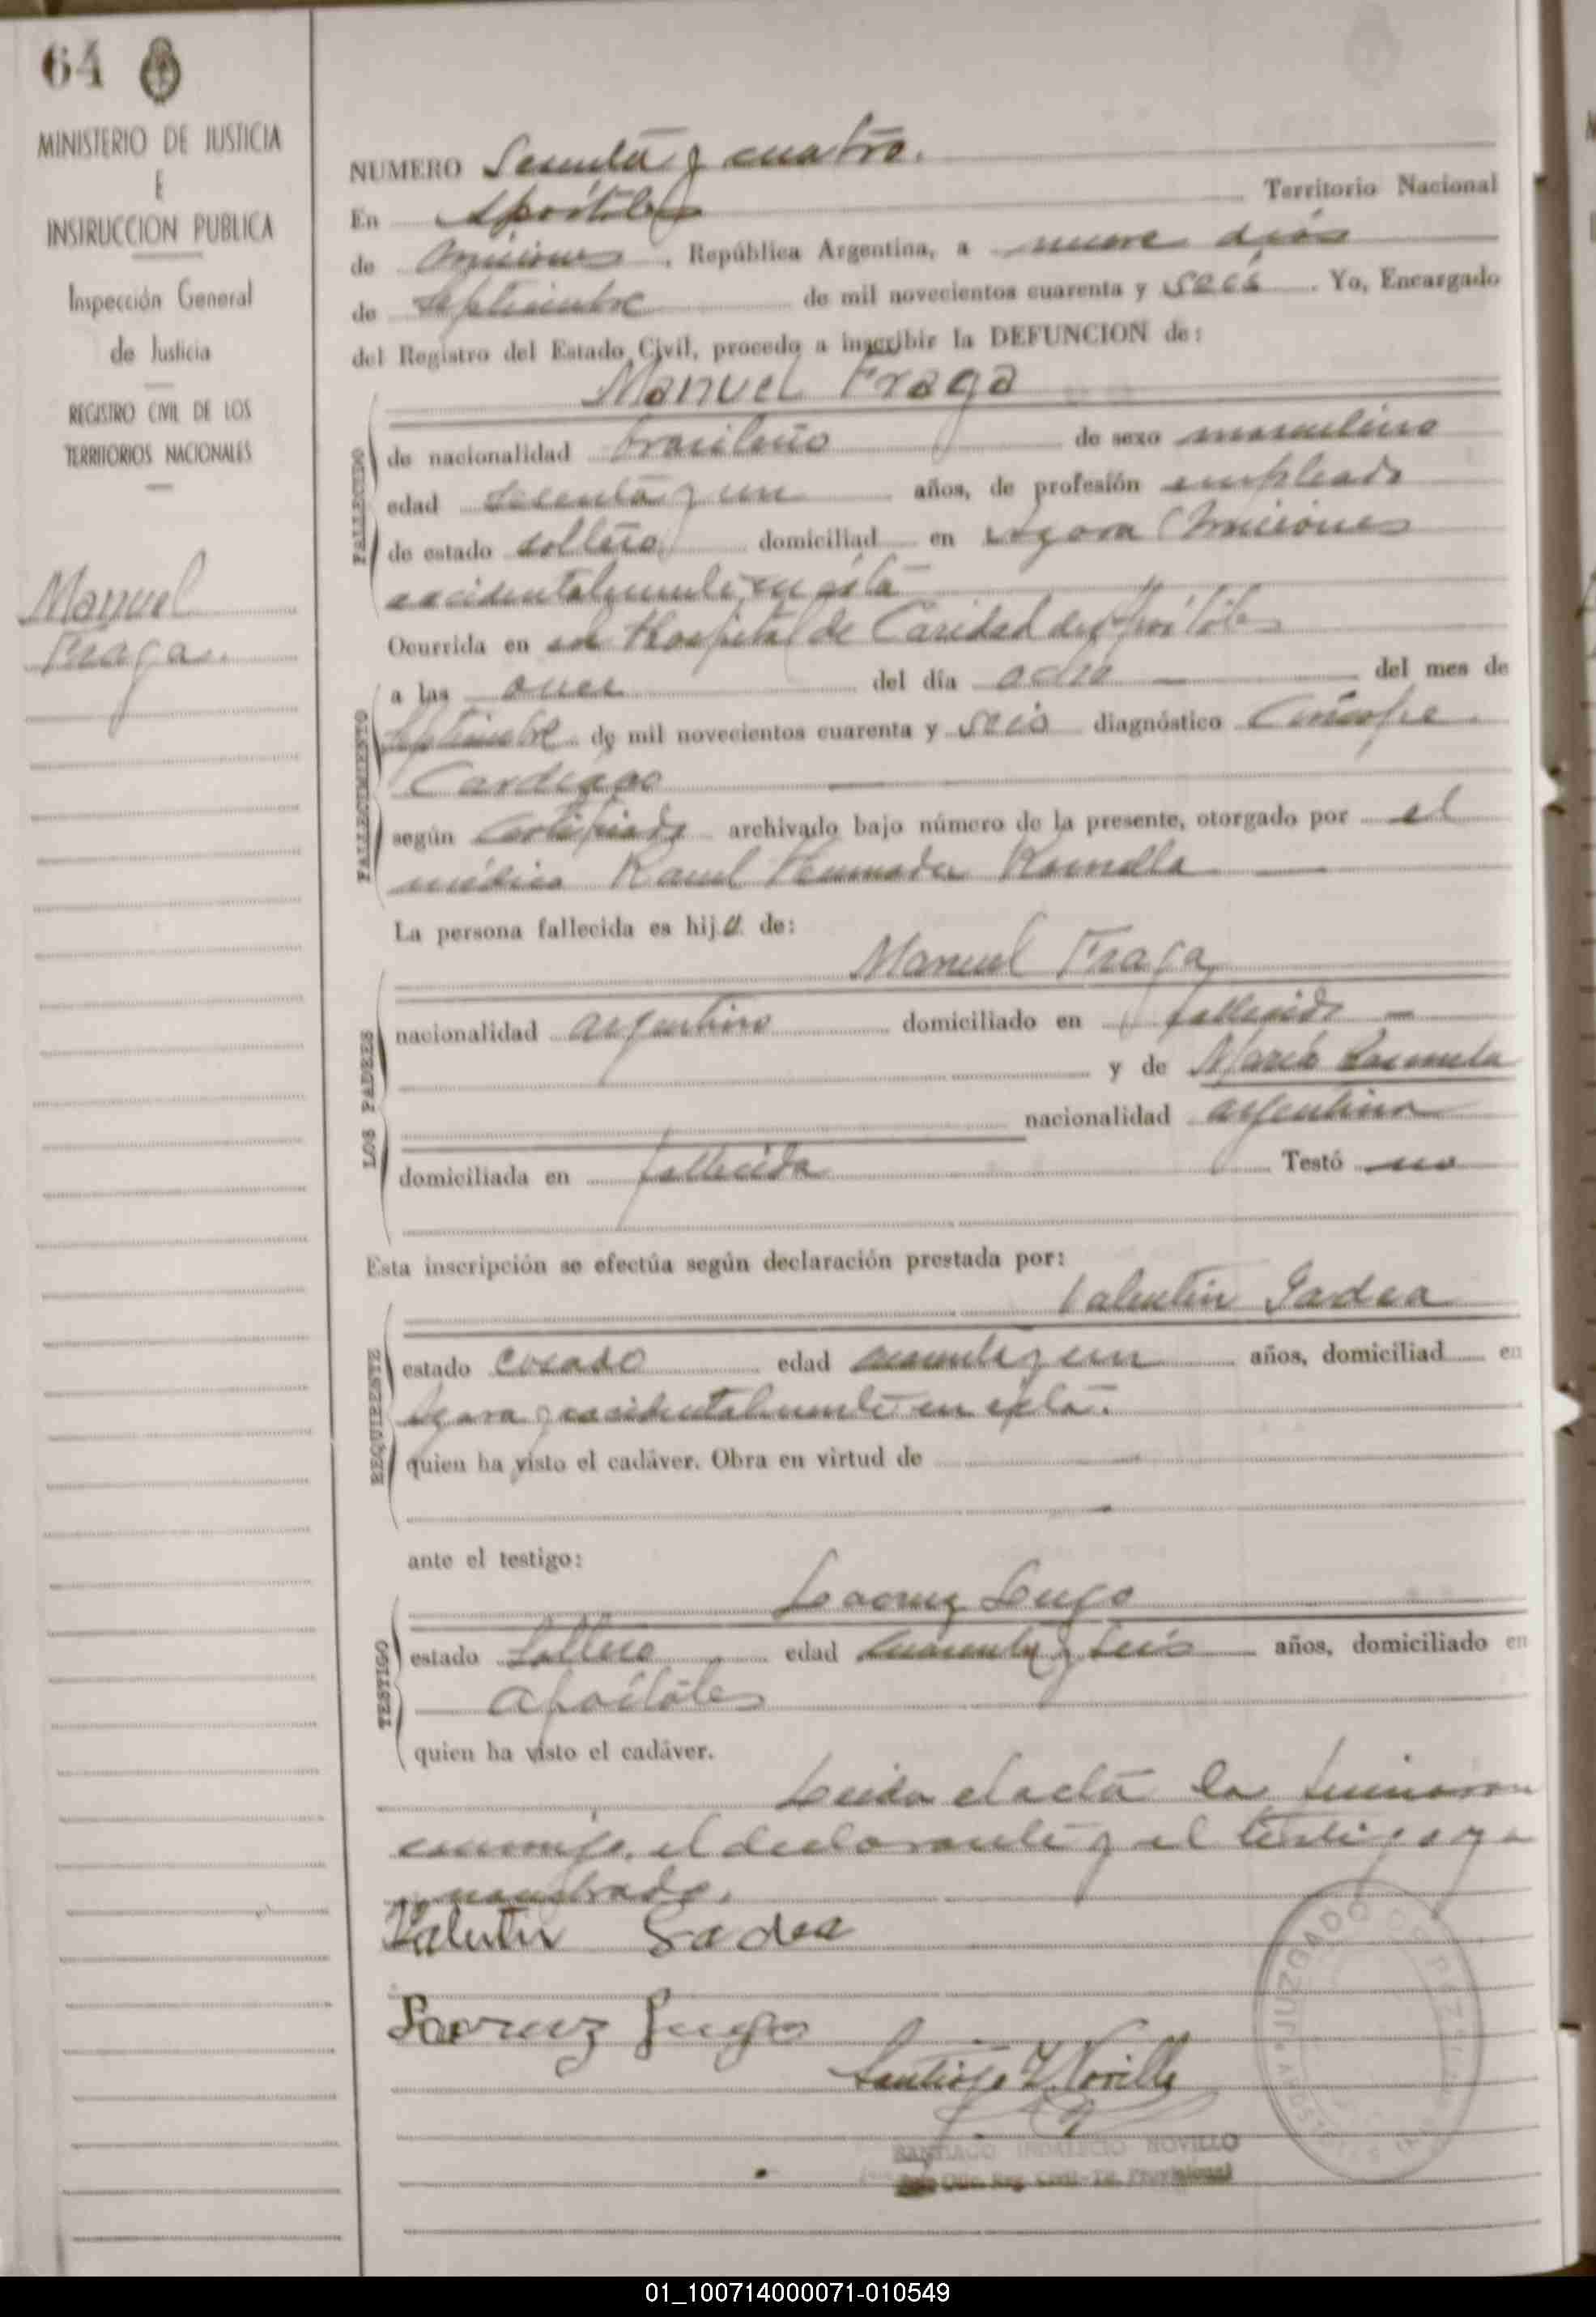 64
MINISTERIO DE JUSTICIA
E
INSTRUCCION PUBLICA
Inspección General
de Justicia
REGISTRO CIVIL DE LOS
TERRITORIOS NACIONALES
Manuel
Fraga.
NUMERO Sesenta y cuatro.
En Apóstoles Territorio Nacional
de Misiones, República Argentina, a nueve días
de Septiembre de mil novecientos cuarenta y seis. Yo, Encargado
del Registro del Estado Civil, procedo a inscribir la DEFUNCION de:
Manuel Fraga
FALLECIDO
de nacionalidad brasileño de sexo masculino
edad sesenta y un años, de profesión empleado
de estado soltero domiciliad en Azara Misiones
accidentalmente en ésta
Ocurrida en el Hospital de Caridad de Apóstoles
FALLECIMIENTO
a las once del día ocho del mes de
Septiembre de mil novecientos cuarenta y seis diagnóstico Síncope
Cardiaco
según certificado archivado bajo número de la presente, otorgado por el
médico Raul
La persona fallecida es hijo de:
LOS PADRES
Manuel Fraga
nacionalidad argentino domiciliado en fallecido
y de María
nacionalidad argentina
domiciliada en fallecida Testó no
Esta inscripción se efectúa según declaración prestada por:
REQUIRENTE
Valentin Gadea
estado casado edad y un años, domiciliad en
Azara y accidentalmente en esta.
quien ha visto el cadáver. Obra en virtud de
ante el testigo:
TESTIGO
Lacruz Lugo
estado Soltero edad cuarenta y seis años, domiciliado en
Apóstoles
quien ha visto el cadáver.
Leida el acta la firmaron
conmigo, el declarante y el testigo ya
nombrado.
Valentin Gadea
Lacruz Lugo
Santiago I. Novillo
SANTIAGO INDALECIO NOVILLO
Reg. Civil
JUZGADO DE PAZ
APOSTOLES
01_100714000071-010549